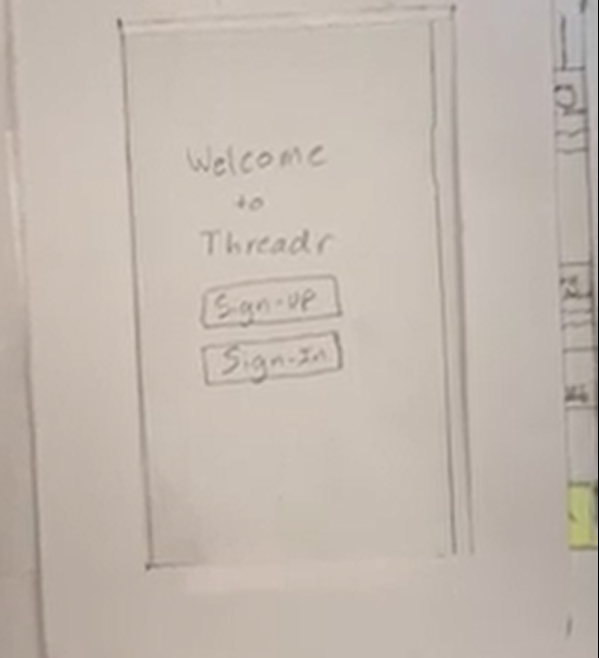 Welcome
to
Threadr
Sign-up
Sign-In